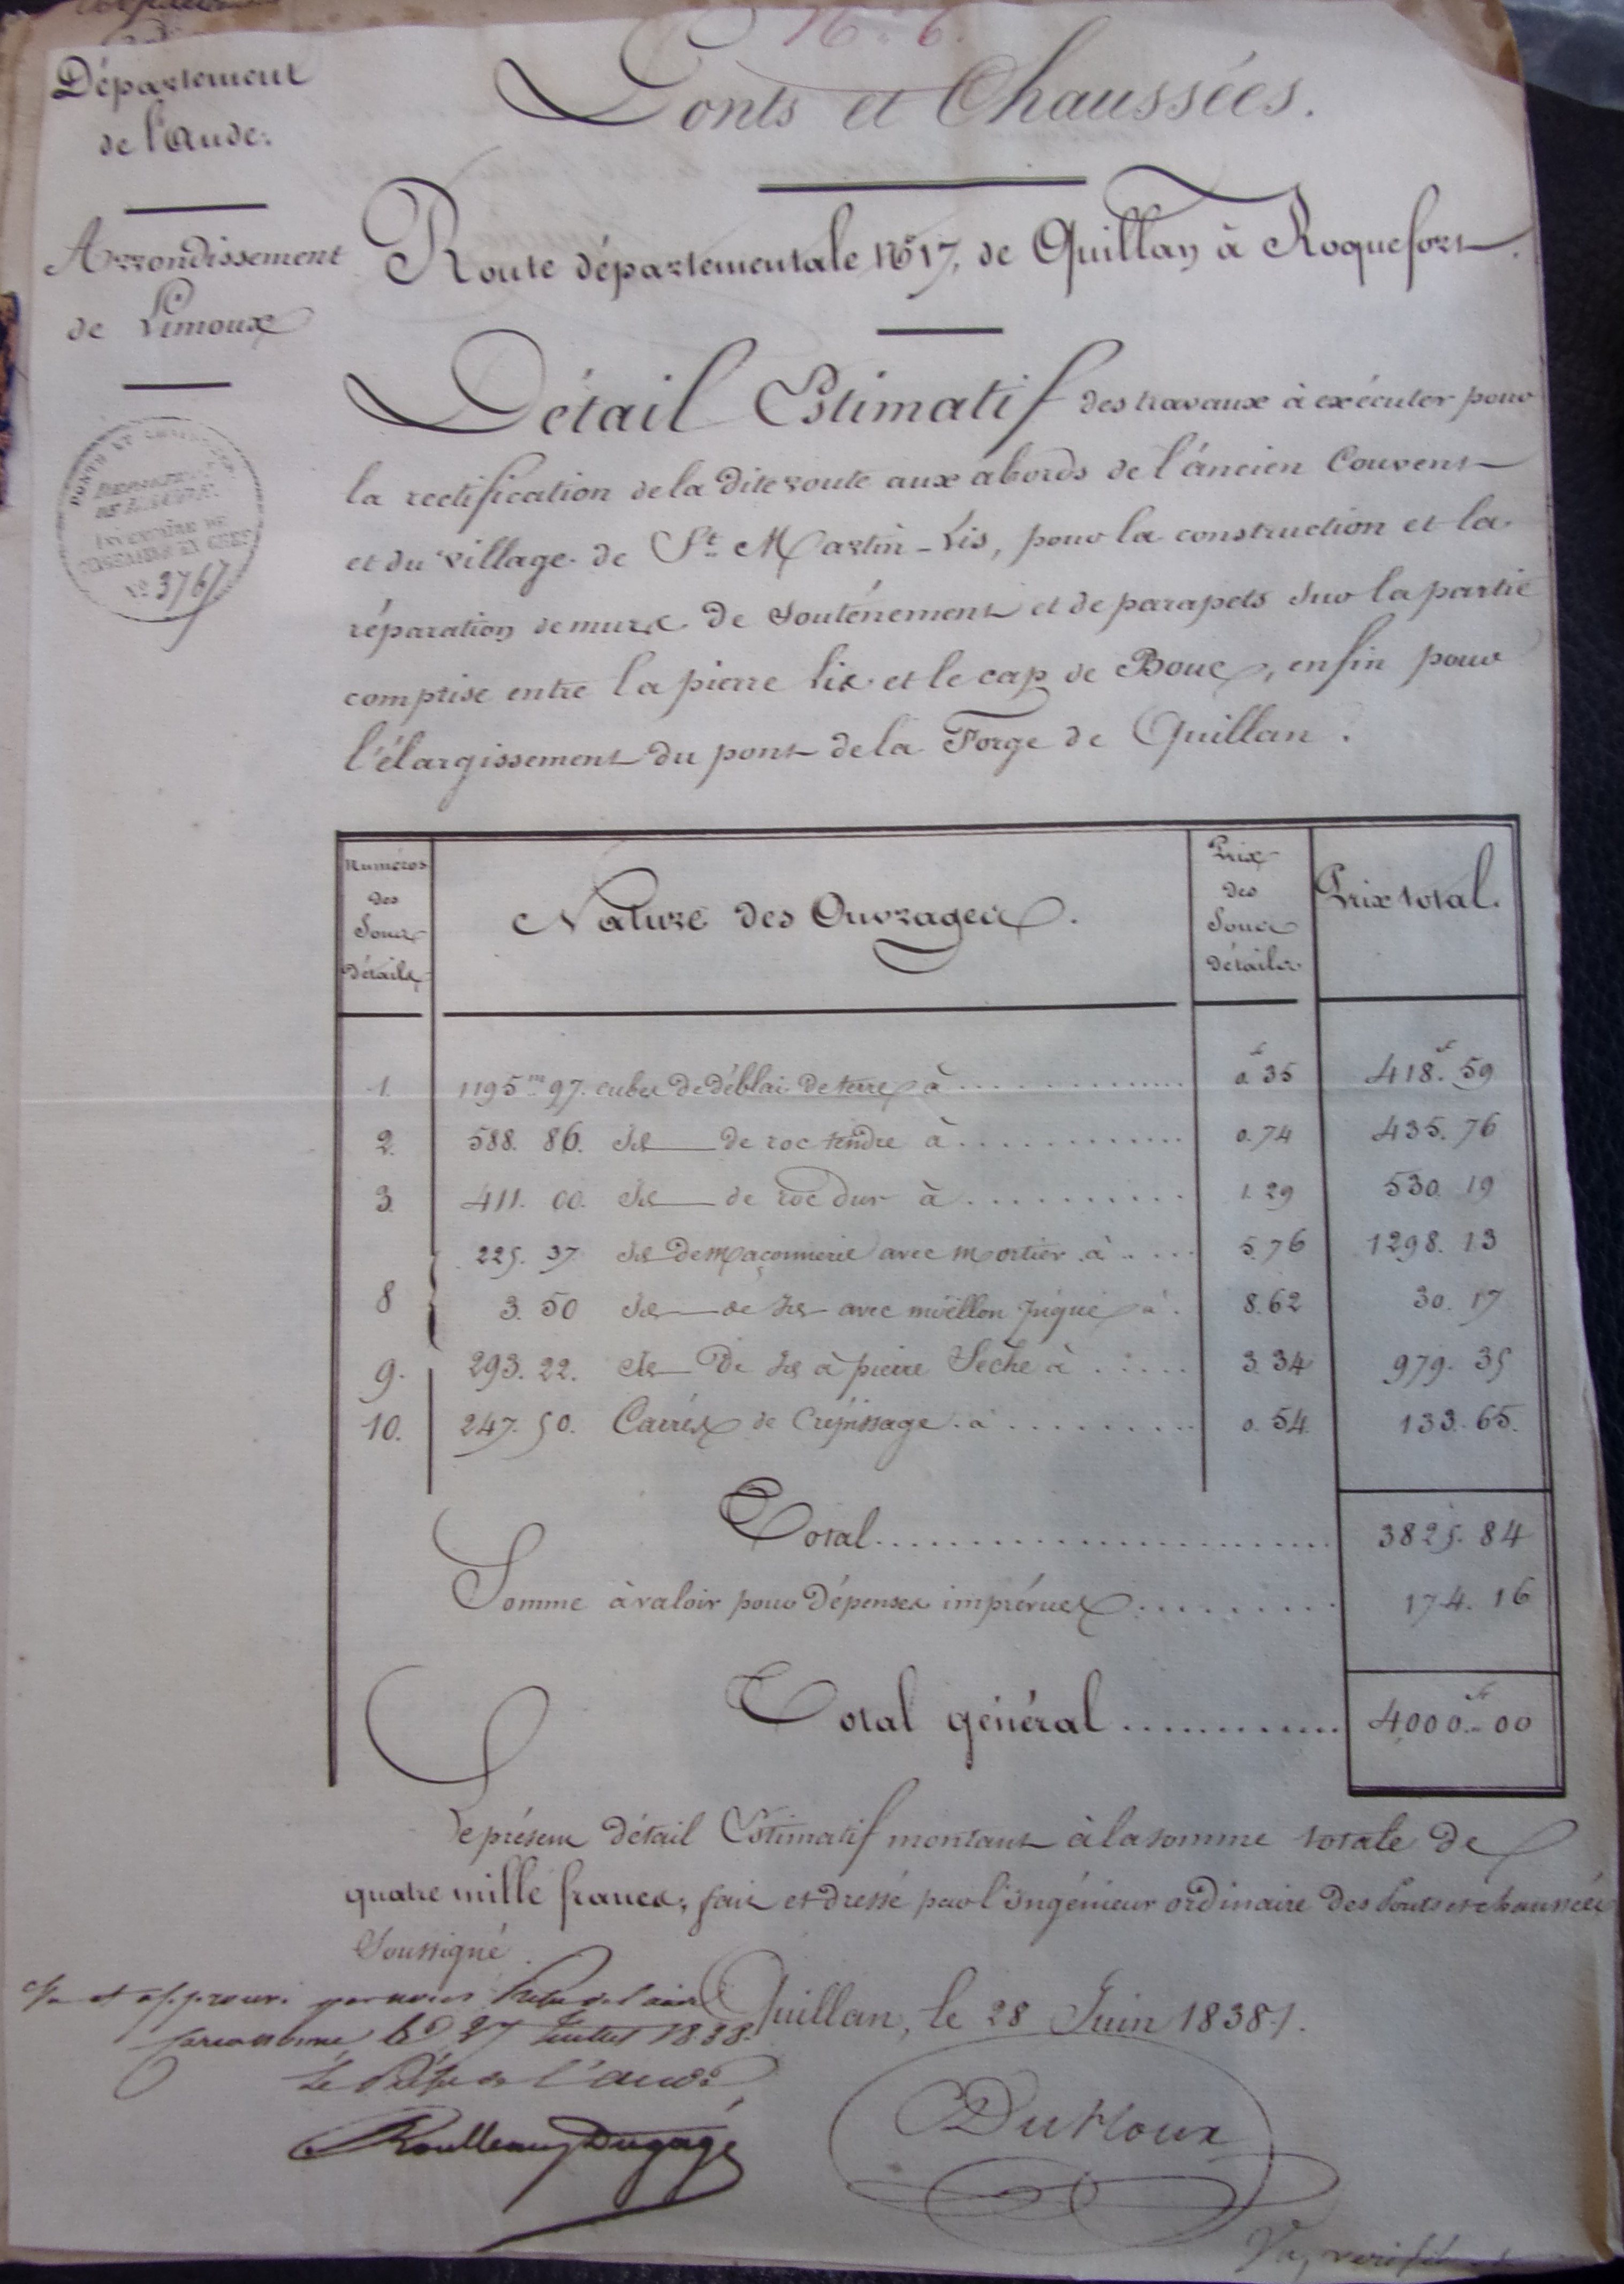 N° 6.
Département
de l'Aude.
Ponts et Chaussées.
Arrondissement
de Limoux
Route départementale N° 17, de Quillan à Roquefort.
PONTS ET CHAUSSÉES
DÉPARTEMENT
DE L'AUDE
INVENTAIRE DE
L'INGÉNIEUR EN CHEF
N° 3767
Détail Estimatif des travaux à exécuter pour
la rectification de la dite route aux abords de l'áncien Couvent
et du village de St Martin-Lis, pour la construction et la
réparation de murs de Souténement et de parapets sur la partie
comprise entre la pierre Lis et le cap de Bouc, enfin pour
l'élargissement du pont de la Forge de Quillan.
Numéros des Sous Détails
Nature des Ouvrages.
Prix des Sous détails
Prix total.
1. 1195m 97. cubes de déblai de terre à ............ 0f 35 418f. 59
2. 588. 86. Id de roc tendre à ............ 0. 74 435. 76
3. 411. 00. Id de roc dur à .......... 1. 29 530. 19
225. 37 Id de maçonnerie avec mortier à ..... 5. 76 1298. 13
8 3. 50 Id de Id avec moëllon piqué à . 8. 62 30. 17
9. 293. 22. Id De Id à pierre Sèche à ..... 3. 34 979. 35
10. 247. 50. Carrés de Crépissage à ......... 0. 54 133. 65.
Total ........................ 3825. 84
Somme à valoir pour Dépenses imprévues ......... 174. 16
Total général ............ 4000f. 00
Le présent détail Estimatif montant à la somme totale de
quatre mille francs, fait et dressé par l'ingénieur ordinaire des Ponts et chaussées
Soussigné.
Vu et approuvé par nous Préfet de l'aude
Carcassonne, le 27 Juillet 1838.
Le Préfet de l'aude
Quillan, le 28 Juin 1838.
Roulleaux Dugage
DuHoux
Vu, vérifié